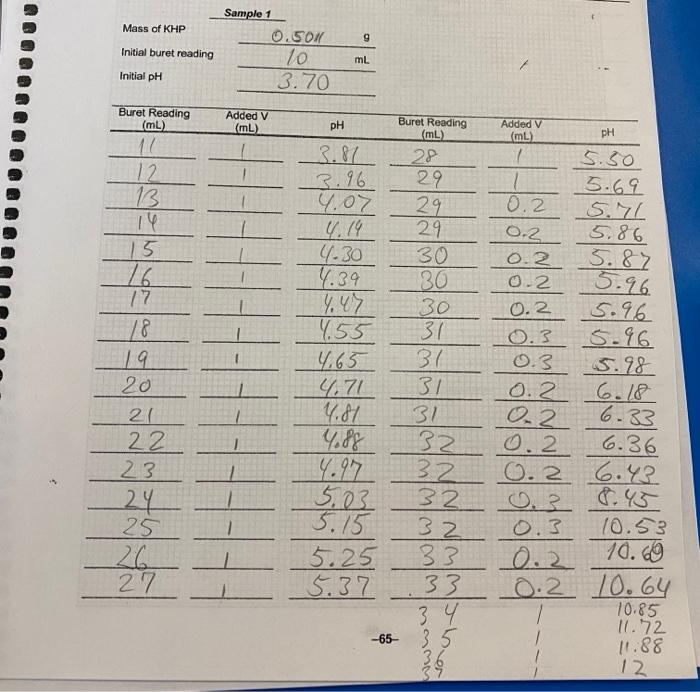 Sample 1
Mass of KHP 0.5011 g
Initial buret reading 10 mL
Initial pH 3.70
Buret Reading (mL) Added V (mL) pH Buret Reading (mL) Added V (mL) pH
11 1 3.81 28 1 5.50
12 1 3.96 29 1 5.69
13 1 4.07 29 0.2 5.71
14 1 4.19 29 0.2 5.86
15 1 4.30 30 0.2 5.87
16 1 4.39 30 0.2 5.96
17 1 4.47 30 0.2 5.96
18 1 4.55 31 0.3 5.96
19 1 4.65 31 0.3 5.98
20 1 4.71 31 0.2 6.18
21 1 4.81 31 0.2 6.33
22 1 4.88 32 0.2 6.36
23 1 4.97 32 0.2 6.43
24 1 5.03 32 0.3 8.45
25 1 5.15 32 0.3 10.53
26 1 5.25 33 0.2
27 1 5.37 33 0.2 10.64
34 1 10.85
-65- 35 1 11.72
36 1 11.88
1 12